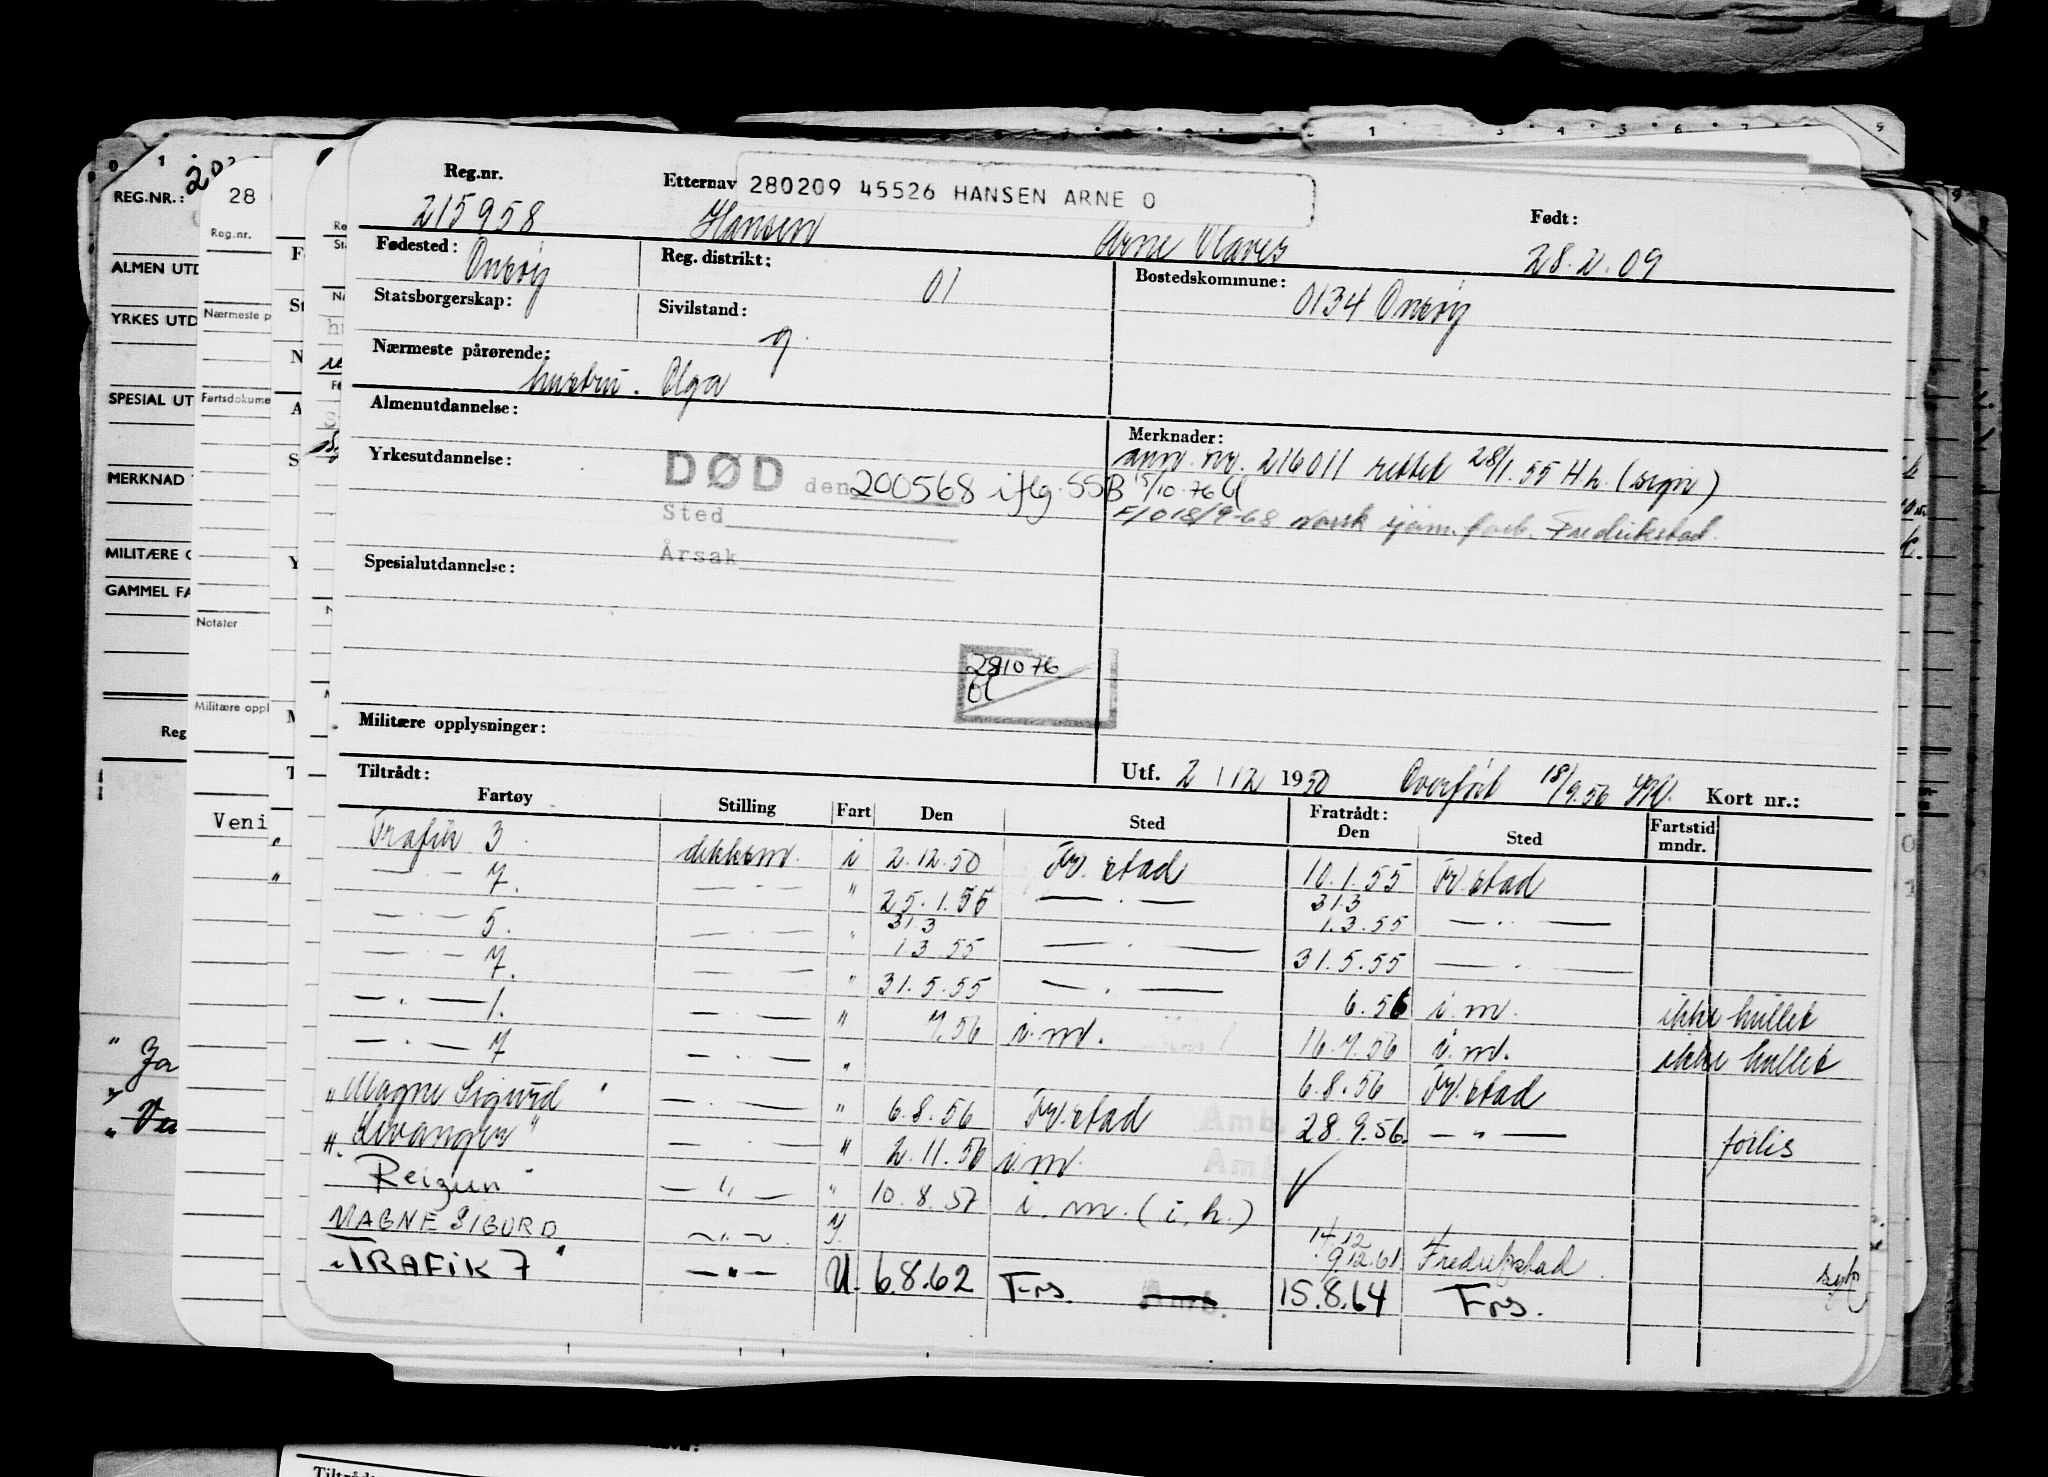 Reg.nr. Etternav 280209 45526 HANSEN ARNE O Født:
215958 Hansen Arne 28.2.09
Fødested: Onsøy Reg. distrikt: 01 Bostedskommune: 0134 Onsøy
Statsborgerskap: Sivilstand: g.
Nærmeste pårørende: hustru. Olga
Almenutdannelse: Merknader:
ann. nr. 216011 rettet 28/1.55 H.h. (sign)
Yrkesutdannelse: DØD den 200568 iflg. SSB 15/10.76
Sted Norsk sjøm. forb. Fredrikstad.
Årsak
Spesialutdannelse:
281076
Militære opplysninger:
Tiltrådt: Utf. 2 / 12 1950 Overført 18/9.56 Kort nr.:
Fartøy Stilling Fart Den Sted Fratrådt: Den Sted Fartstid mndr.
Trafik 3 dekksm. i 2.12.50 Fr.stad 10.1.55 Fr.stad
— · — 7. — · — " 25.1.55 — · — 31.3 1.3.55 — · —
— · — 5. — · — " 31.3 1.3.55 — · — 31.5.55 — · —
— · — 7. — · — " 31.5.55 — · — 6.56 i.m. ikke hullet
— · — 1. — · — " 7.56 i.m. 16.7.56 i.m. ikke hullet
— · — 7 — · — " 6.8.56 Fr.stad
"Magne Sigurd" — · — " 6.8.56 Fr.stad Amb. 28.9.56. — " — forlis
— · — " 2.11.56 i.m. Amb
Reigun — " — " 10.8.57 i.m. (i.h.)
MAGNE SIGURD — " — 14.12 9.12.61 Fredrikstad
"TRAFIK 7" — " — U. 6.8.62 Frs. Amb. 15.8.64 Frs.
REG.NR.:
28
Reg.nr.
ALMEN UTD
YRKES UTD
Nærmeste p
SPESIAL UT
Fartsdokume
MERKNAD
MILITÆRE
GAMMEL FA
Notater
Militære oppl
Reg
Veni